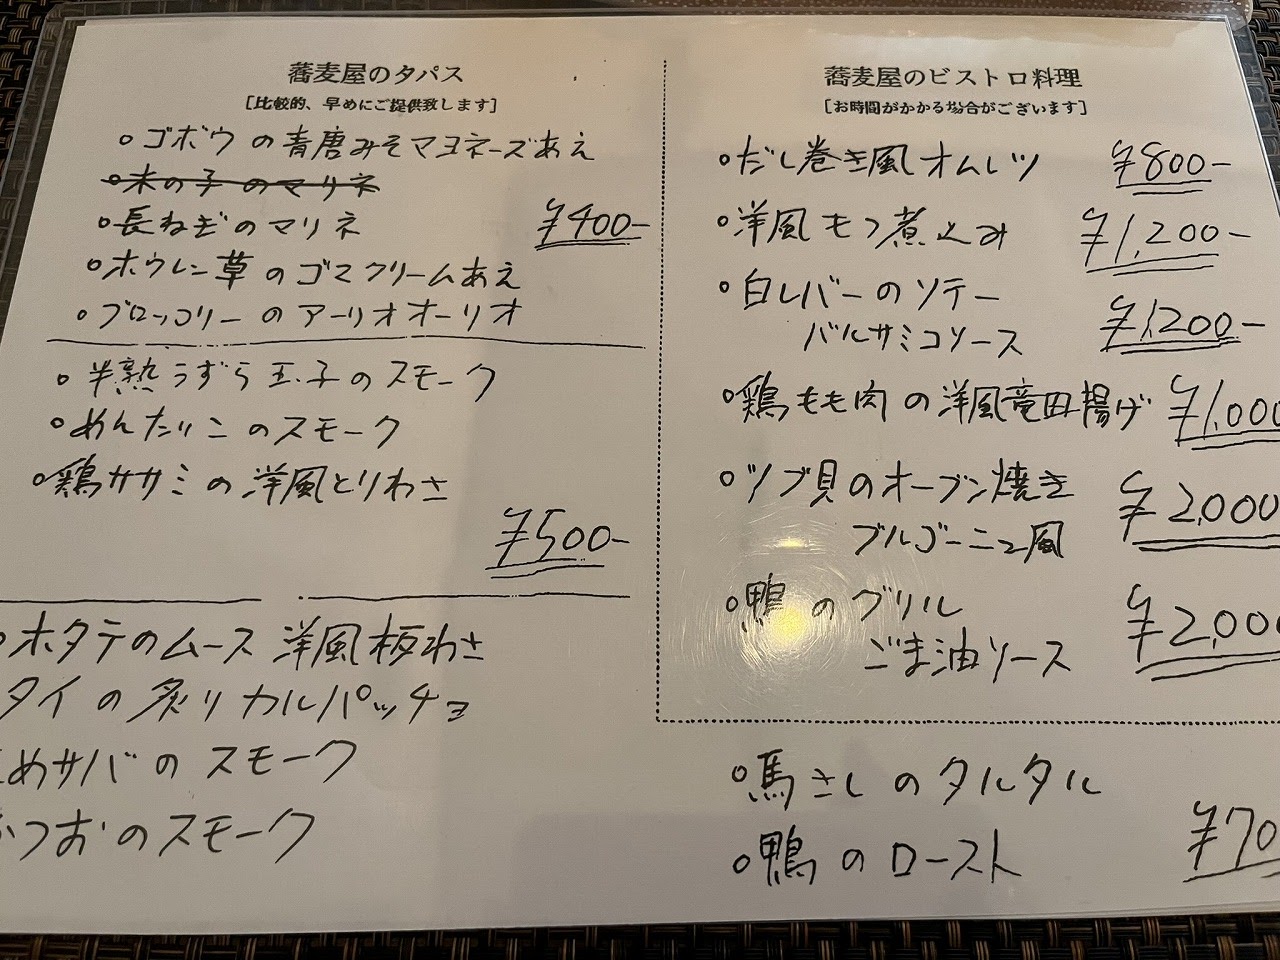 蕎麦屋のタパス
［比較的、早めにご提供致します］
○ゴボウの青唐みそマヨネーズあえ
○木の子のマリネ
○長ねぎのマリネ
¥400-
○ホウレン草のゴマクリームあえ
○ブロッコリーのアーリオオーリオ
○半熟うずら玉子のスモーク
○めんたいこのスモーク
○鶏ササミの洋風とりわさ
¥500-
○ホタテのムース 洋風板わさ
タイの炙りカルパッチョ
めサバのスモーク
つおのスモーク
蕎麦屋のビストロ料理
［お時間がかかる場合がございます］
○だし巻き風オムレツ ¥800-
○洋風もつ煮込み ¥1,200-
○白レバーのソテー
バルサミコソース ¥1,200-
○鶏もも肉の洋風竜田揚げ ¥1,000
○ツブ貝のオーブン焼き ¥2,000
ブルゴーニュ風
○鴨のグリル ¥2,000
ごま油ソース
○馬さしのタルタル
○鴨のロースト
¥70